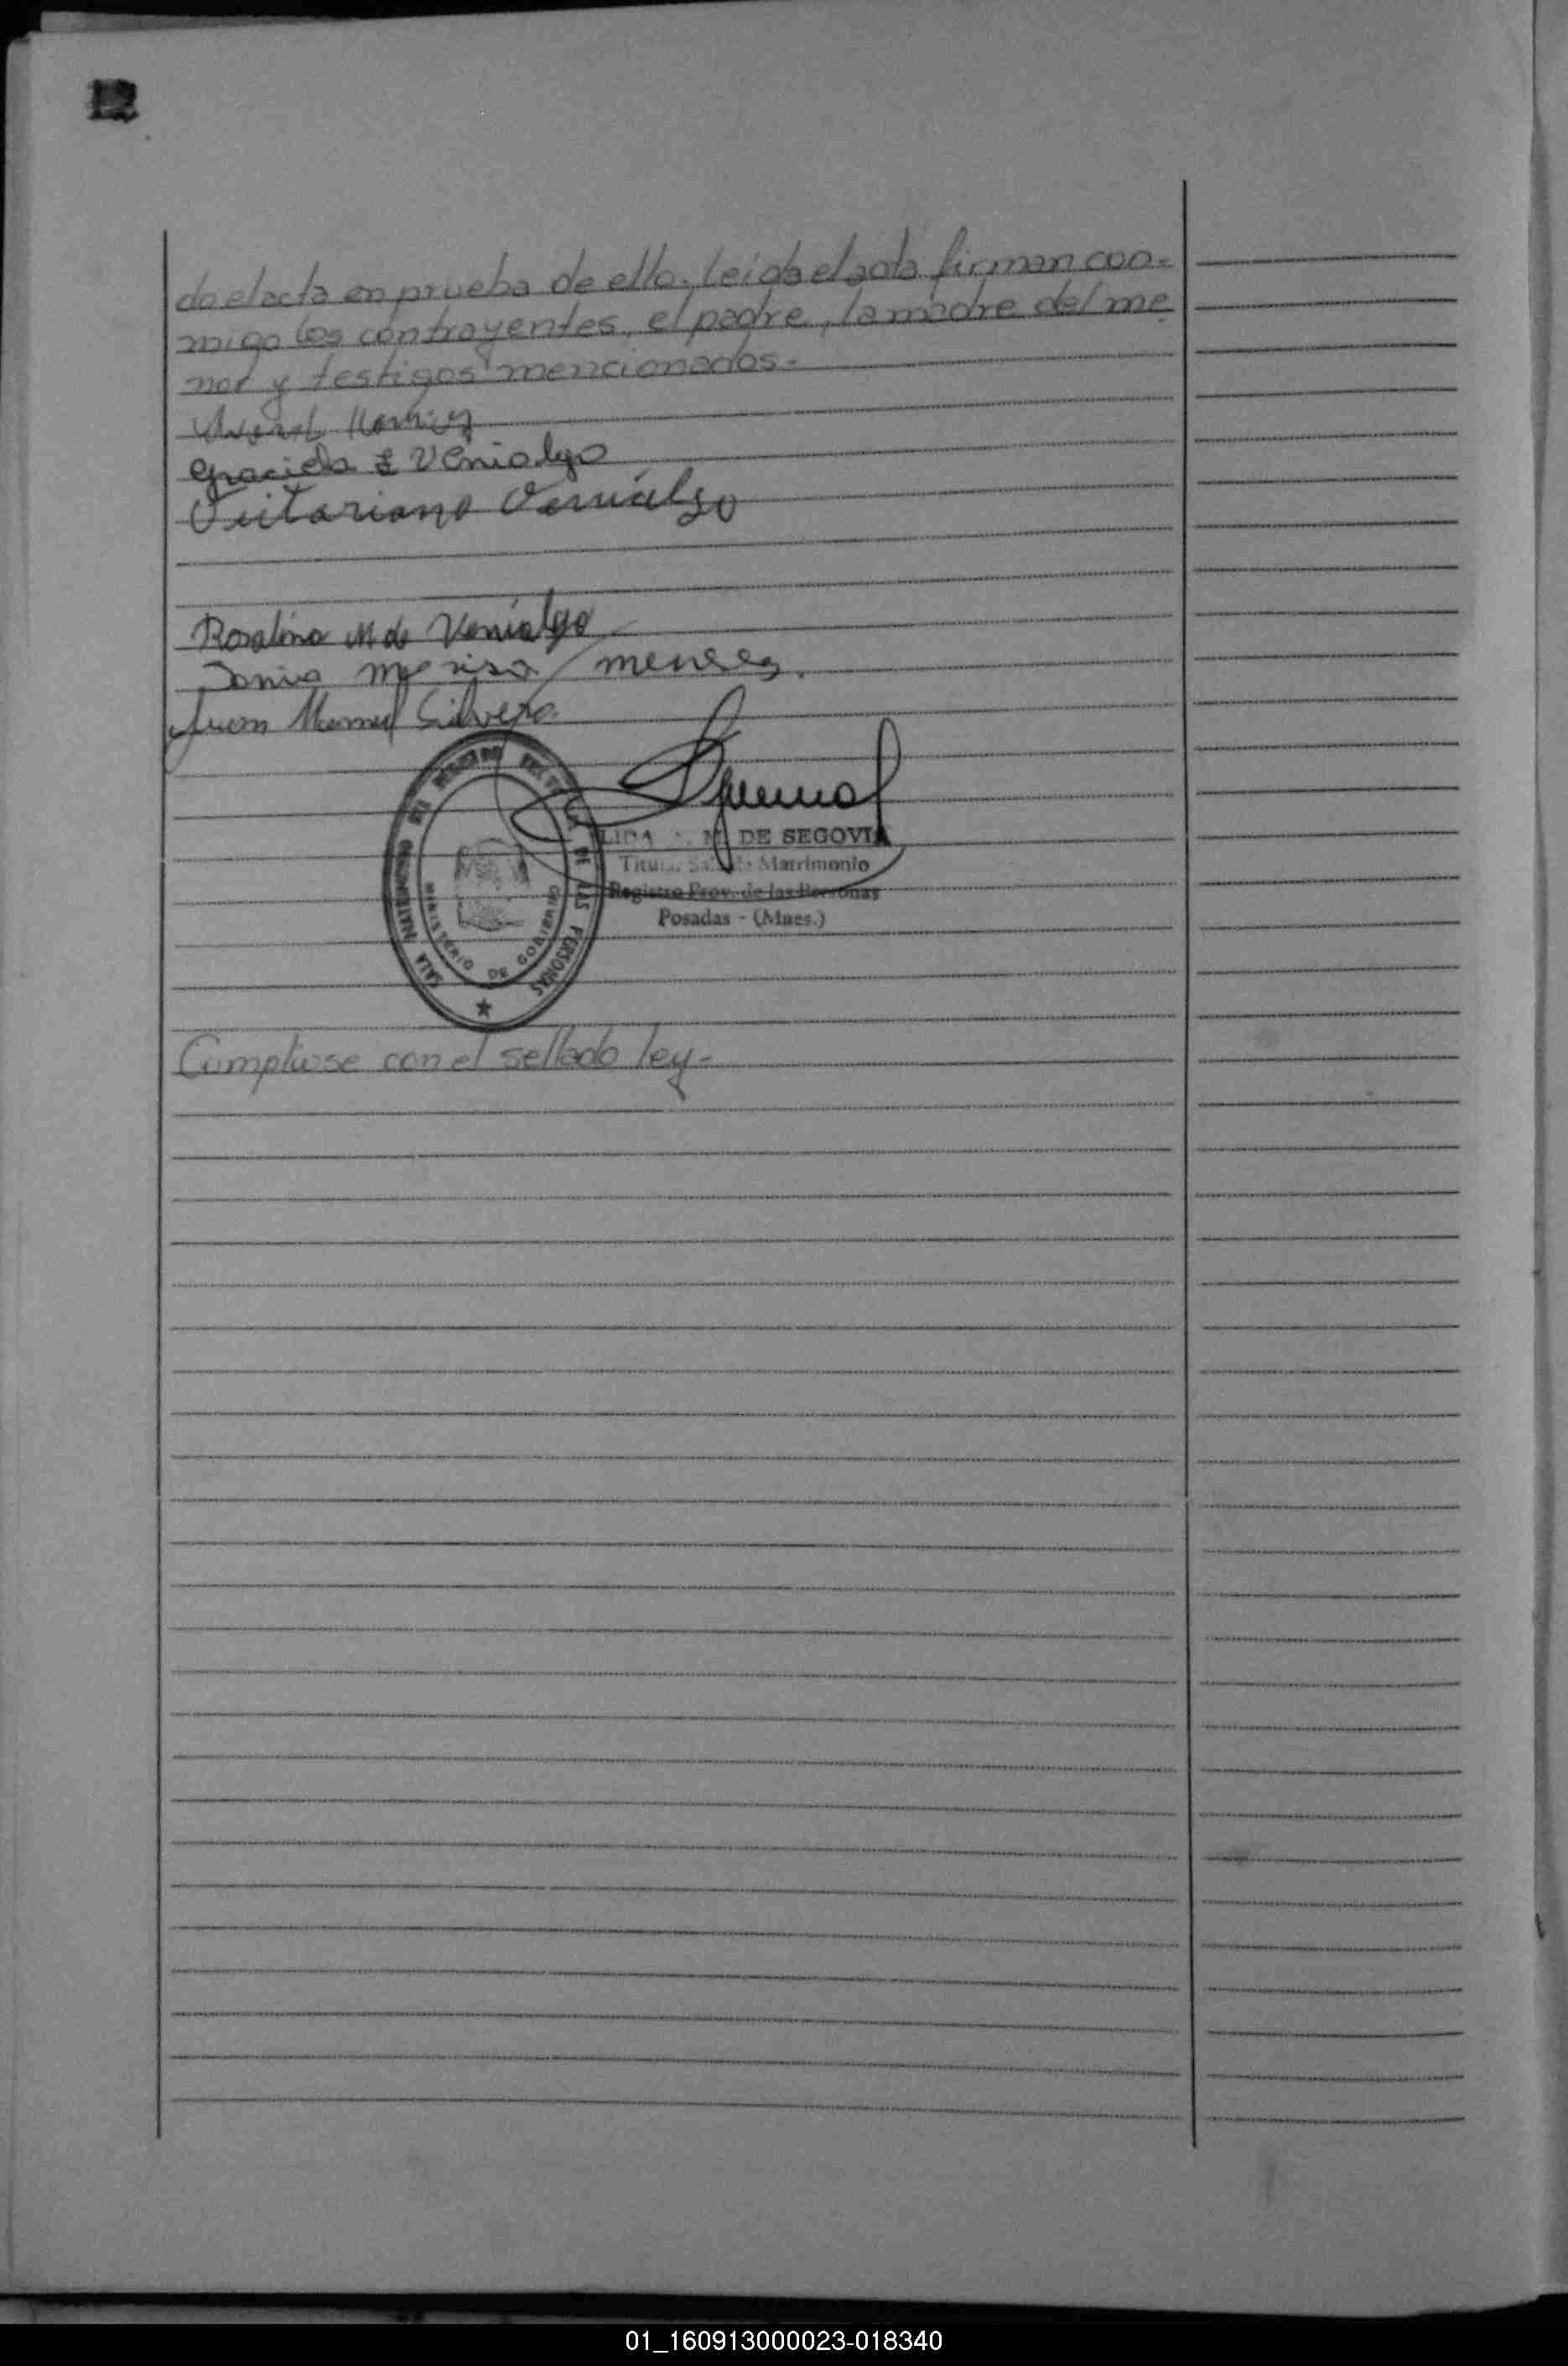 12
do el acta en prueba de ello. leida el acta firman con-
migo los contrayentes, el padre, la madre del me
nor y testigos mencionados.-
Graciela E Venialgo
Victoriano Venialgo
Rosalina M de Venialgo
Sonia Marisa Meneses.
Juan Manuel Silvero
SALA MATRIMONIO DEL REGISTRO DE LAS PERSONAS
MINISTERIO DE GOBIERNO
LIDA M. DE SEGOVIA
Titular Sala de Matrimonio
Registro Prov. de las Personas
Posadas - (Mnes.)
Cumpliose con el sellado ley-
01_160913000023-018340